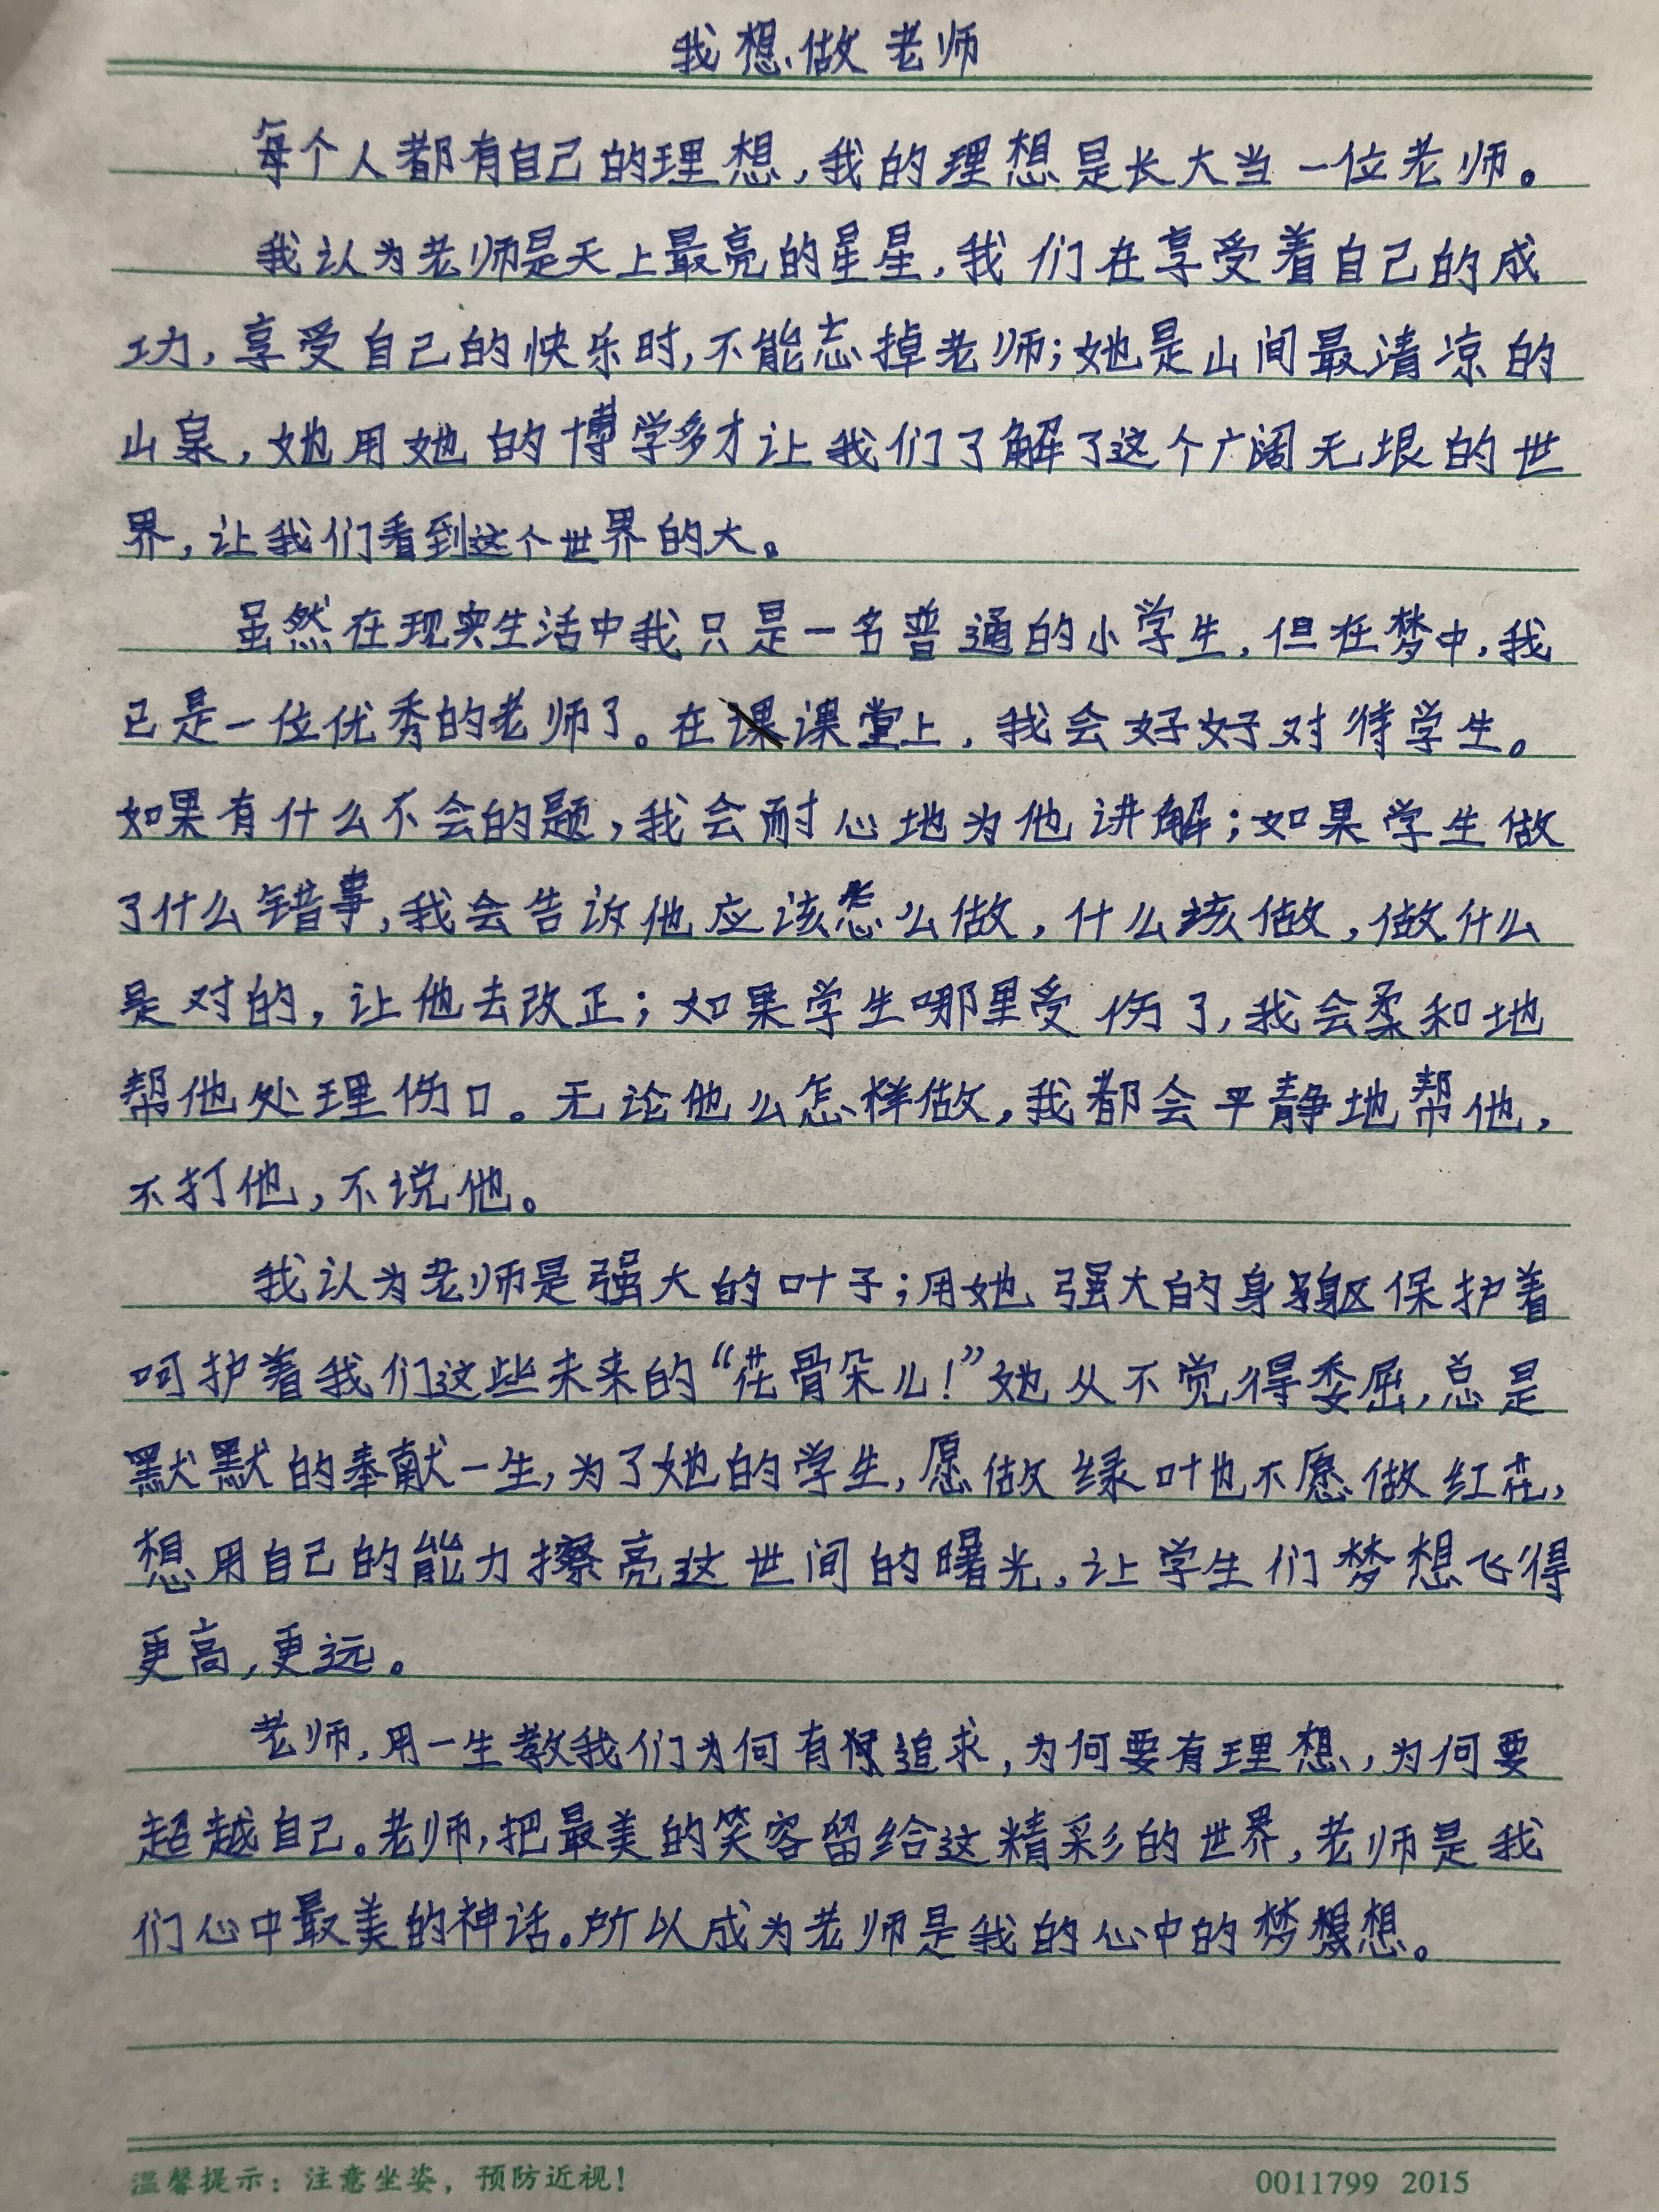 我想做老师
每个人都有自己的理想,我的理想是长大当一位老师。
我认为老师是天上最亮的星星,我们在享受着自己的成
功,享受自己的快乐时,不能忘掉老师;她是山间最清凉的
山泉,她用她的博学多才让我们了解了这个广阔无垠的世
界,让我们看到这个世界的大。
虽然在现实生活中我只是一名普通的小学生,但在梦中,我
已是一位优秀的老师了。在课堂上,我会好好对待学生。
如果有什么不会的题,我会耐心地为他讲解;如果学生做
了什么错事,我会告诉他应该怎么做,什么该做,做什么
是对的,让他去改正;如果学生哪里受伤了,我会柔和地
帮他处理伤口。无论他么怎样做,我都会平静地帮他,
不打他,不说他。
我认为老师是强大的叶子;用她强大的身躯保护着
呵护着我们这些未来的“花骨朵儿!”她从不觉得委屈,总是
默默的奉献一生,为了她的学生,愿做绿叶也不愿做红花,
想用自己的能力擦亮这世间的曙光,让学生们梦想飞得
更高,更远。
老师,用一生教我们为何有追求,为何要有理想,为何要
超越自己。老师,把最美的笑容留给这精彩的世界,老师是我
们心中最美的神话。所以成为老师是我的心中的梦想。
温馨提示:注意坐姿,预防近视!
0011799 2015